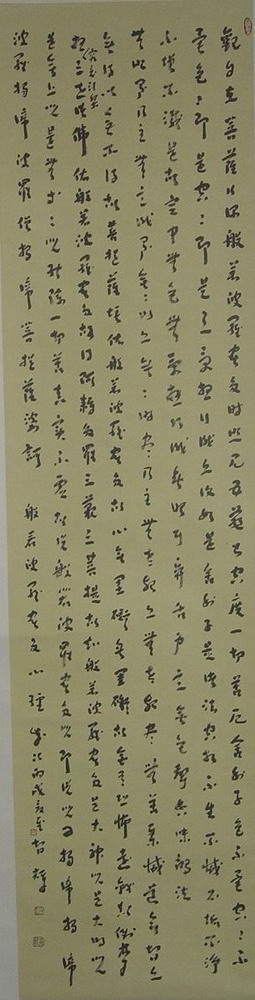 觀自在菩薩行深般若波羅蜜多時照見五蘊皆空度一切苦厄舍利子色不異空〻不
異色〻即是空〻即是色受想行識亦復如是舍利子是諸法空相不生不滅不垢不淨
不增不減是故空中無色無受想行識無眼耳鼻舌身意無色聲香味觸法
無眼界乃至無意識界無〻明亦無〻明盡乃至無老死亦無老死盡無苦集滅道無智亦
無得以無所得故菩提薩埵依般若波羅蜜多故心無罣礙無罣礙故無有恐怖遠離顛倒夢
想究竟涅槃三世諸佛依般若波羅蜜多故得阿耨多羅三藐三菩提故知般若波羅蜜多是大神咒是大明咒
是無上咒是無等〻咒能除一切苦真實不虛故說般若波羅蜜多咒即說咒曰揭諦揭諦
波羅揭諦波羅僧揭諦菩提薩婆訶 般若波羅蜜多心經 歲次丙戌